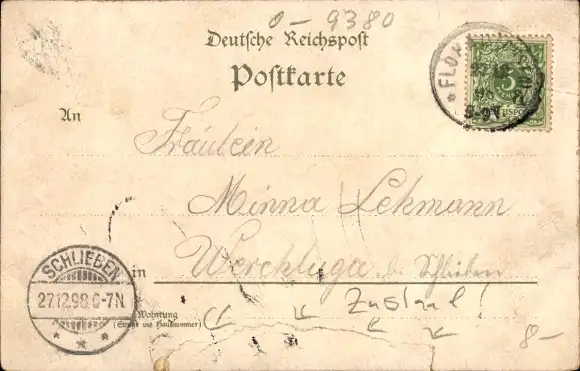 0-9380
Deutsche Reichspost
Postkarte
An
Fräulein
Minna Lehmann
in Werchluga b. Schlieben
SCHLIEBEN
27.12.98.6-7N
Wohnung
(Straße und Hausnummer)
Zustand!
8-